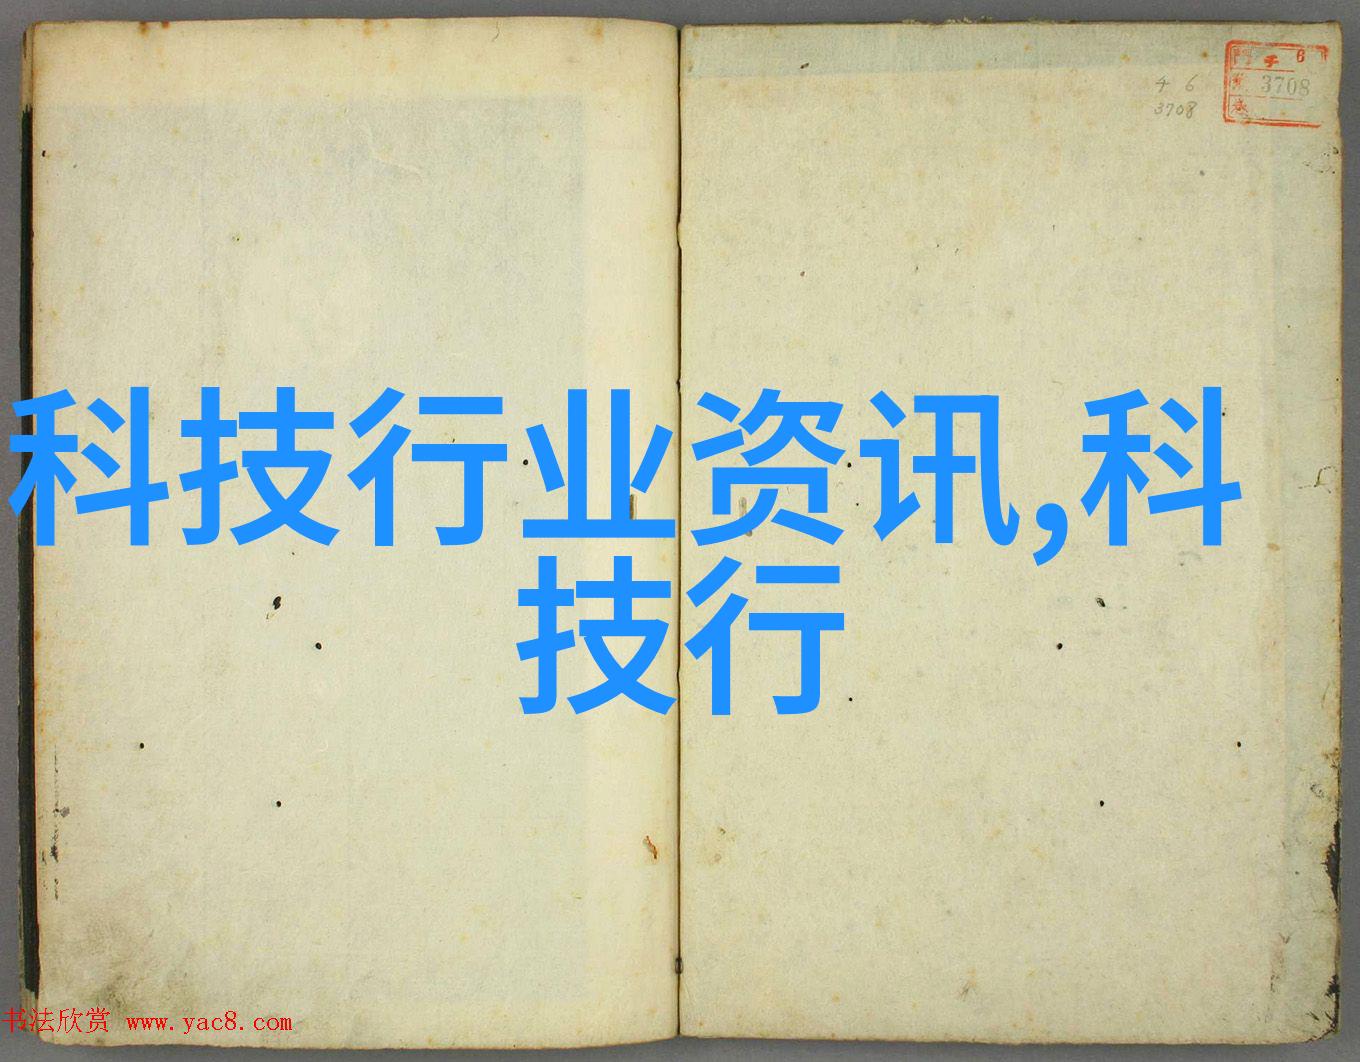 科技行业资讯,科
技行
4 6
3708
门 子 6
3708
书法欣赏 www.yac8.com